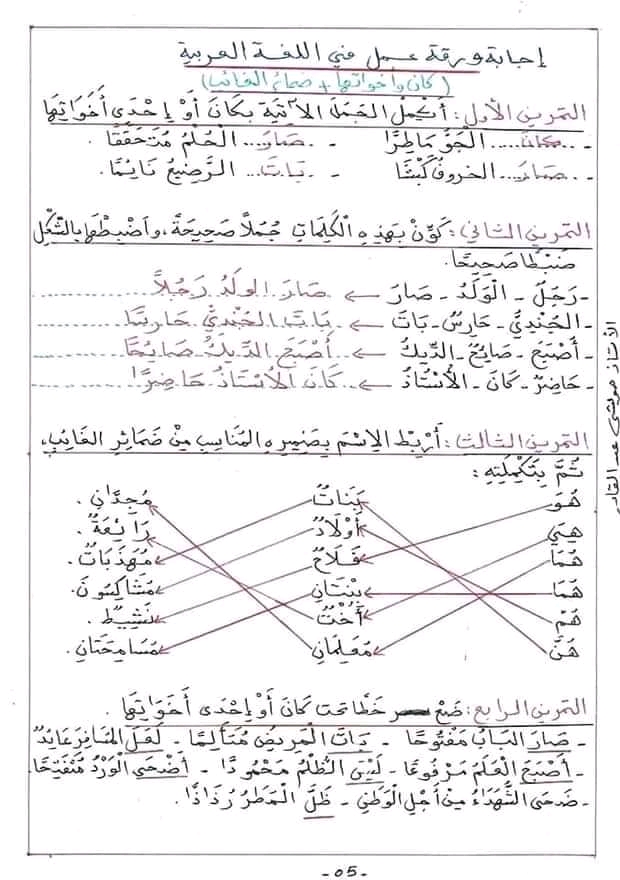 إجابة ورقة عمل في اللغة العربية
(كان وأخواتها + ضمائر الغائب)
التمرين الأول: أَكْمِلْ الجُمَلَ الآتية بِكَانَ أَوْ إِحْدَى أَخَوَاتِهَا
- ..كانَ..... الْجَوُّ مَاطِرًا - ..صَارَ.... الْحُلْمُ مُتَحَقِّقًا .
- ..صَارَ... الخروفُ كَبْشًا - ..بَاتَ... الرَّضِيعُ نَائِمًا .
التمرين الثاني: كَوِّنْ بِهَذِهِ الْكَلِمَاتِ جُمَلاً صَحِيحَةً، وَاضْبِطْهَا بِالشَّكْلِ
ضَبْطًا صَحِيحًا.
- رَجُلٌ - الْوَلَدُ - صَارَ ← صَارَ الوَلَدُ رَجُلاً
- الجُنْدِيُّ - حَارِسٌ - بَاتَ ← بَاتَ الجُنْدِيُّ حَارِسًا
- أَصْبَحَ - صَائِحٌ - الدِّيكُ ← أَصْبَحَ الدِّيكُ صَائِحًا
- حَاضِرٌ - كَانَ - الأُسْتَاذُ ← كَانَ الأُسْتَاذُ حَاضِرًا
التمرين الثالث: أَرْبِطُ الاِسْمَ بِضَمِيرِهِ المُنَاسِبِ مِنْ ضَمَائِرِ الغَائِبِ،
ثُمَّ بِتَكْمِلَتِهِ:
هُوَ بَنَاتٌ مُجِدَّانِ .
هِيَ أَوْلَادٌ رَائِعَةٌ .
هُمَا فَلَّاحٌ مُهَذَّبَاتٌ .
هُمَا بِنْتَانِ مُشَاكِسُونَ .
هُمْ أُخْتٌ نَشِيطٌ .
هُنَّ مُعَلِّمَانِ مُسَامِحَتَانِ .
التمرين الرابع: ضَعْ خَطًّا تحت كَانَ أَوْ إِحْدَى أَخَوَاتِهَا .
- صَارَ البَابُ مَفْتُوحًا - بَاتَ الْمَرِيضُ مُتَأَلِّمًا - لَعَلَّ المُسَافِرَ عَائِدٌ
- أَصْبَحَ الْعَلَمُ مَرْفُوعًا - لَيْسَ الظُّلْمُ مَحْمُودًا - أَضْحَى الْوَرْدُ مُتَفَتِّحًا.
- ضَحَّى الشُّهَدَاءُ مِنْ أَجْلِ الْوَطَنِ - ظَلَّ الْمَطَرُ رَذَاذًا .
الأستاذ عبد القادر
- 05 -